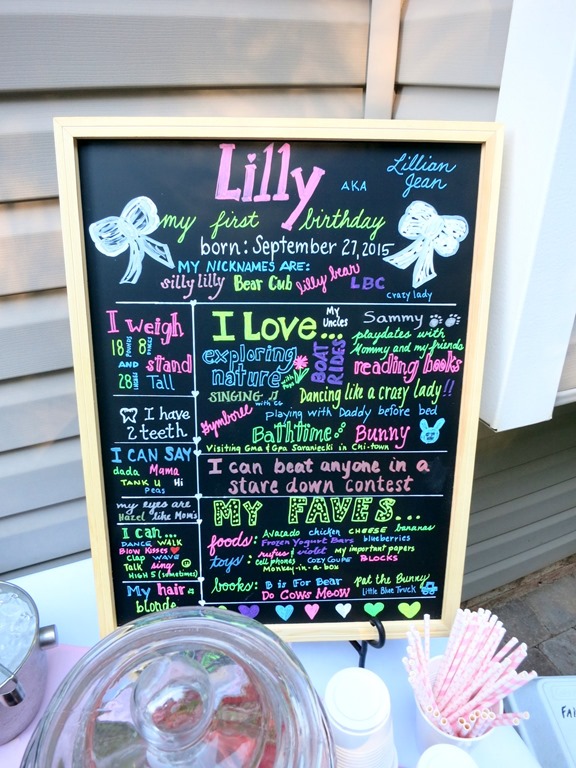 Lilly
AKA
Lillian
Jean
my first birthday
born: September 27, 2015
MY NICKNAMES ARE:
silly lilly Bear Cub lilly bear LBC
crazy lady
I weigh
18 POUNDS 8
AND stand
28 INCHES Tall
I have
2 teeth
I CAN SAY
dada Mama
TANK U Hi
Peas
my eyes are
Hazel like Mom's
I can...
DANCE WALK
Blow Kisses
clap WAVE
Talk sing
HIGH 5 (sometimes)
My hair
blonde
I LOVE...
My
Uncles
Sammy
exploring
nature
with Papa
BOAT
RIDES
playdates with
Mommy and my friends
reading books
SINGING
Dancing like a crazy lady!!
Gymboree
with CC
playing with Daddy before bed
Bathtime
Bunny
Visiting Gma & Gpa Saraniecki in Chi-town
I can beat anyone in a
stare down contest
MY FAVES...
foods: Avocado chicken CHEESE bananas
Frozen Yogurt Bars blueberries
toys: rufus & violet my important papers
cell phones Cozy Coupe BLOCKS
Monkey-in-a-box
books: B is For Bear Pat the Bunny
Do Cows Meow Little Blue Truck